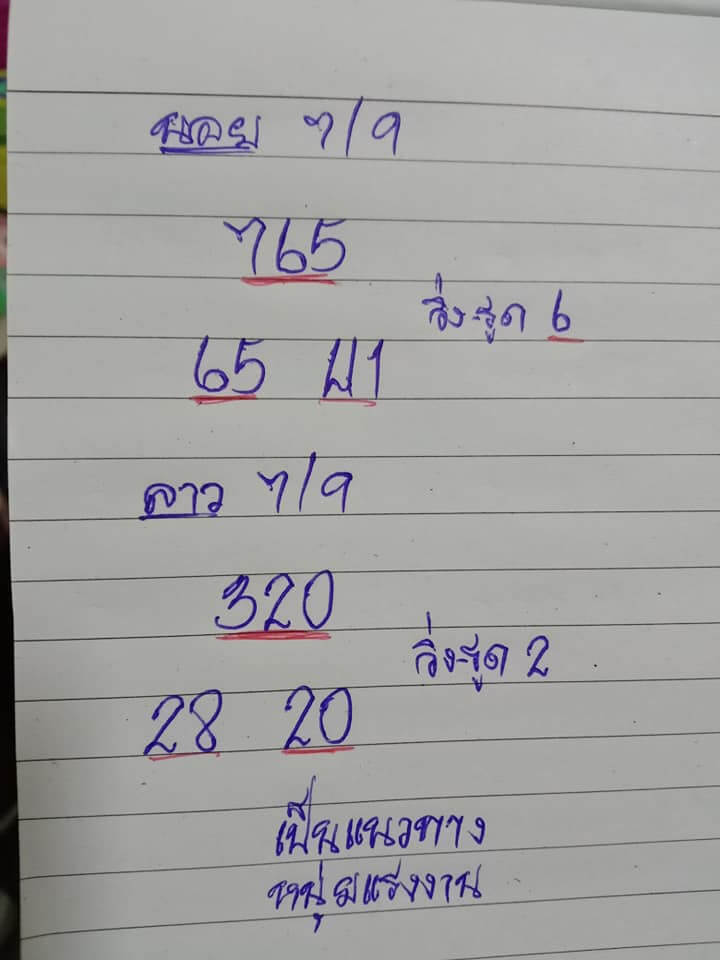 นอย 7/9
765
วิ่ง-รูด 6
65 41
ลาว 7/9
320
วิ่ง-รูด 2
28 20
เป็นแนวทาง
หนุ่มแรงงาน